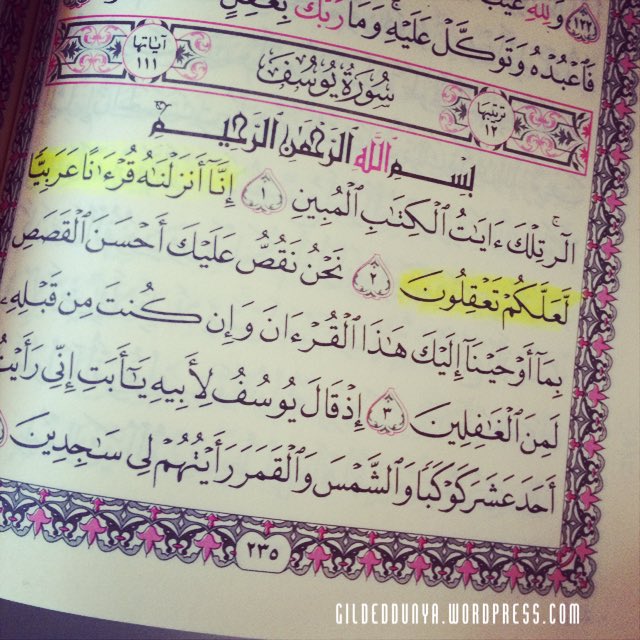 وَلِلَّهِ غَيْبُ
فَاعْبُدْهُ وَتَوَكَّلْ عَلَيْهِ ۚ وَمَا رَبُّكَ بِغَٰفِلٍ
ترتيبها ١٢ سُورَةُ يُوسُف آياتها ١١١
بِسْمِ ٱللَّهِ ٱلرَّحْمَٰنِ ٱلرَّحِيمِ
الٓر ۚ تِلْكَ ءَايَٰتُ ٱلْكِتَٰبِ ٱلْمُبِينِ ١ إِنَّآ أَنزَلْنَٰهُ قُرْءَٰنًا عَرَبِيًّا
لَّعَلَّكُمْ تَعْقِلُونَ ٢ نَحْنُ نَقُصُّ عَلَيْكَ أَحْسَنَ ٱلْقَصَصِ
بِمَآ أَوْحَيْنَآ إِلَيْكَ هَٰذَا ٱلْقُرْءَانَ وَإِن كُنتَ مِن قَبْلِهِۦ
لَمِنَ ٱلْغَٰفِلِينَ ٣ إِذْ قَالَ يُوسُفُ لِأَبِيهِ يَٰٓأَبَتِ إِنِّى رَأَيْتُ
أَحَدَ عَشَرَ كَوْكَبًا وَٱلشَّمْسَ وَٱلْقَمَرَ رَأَيْتُهُمْ لِى سَٰجِدِينَ
٢٣٥
GILDEDDUNYA.WORDPRESS.COM